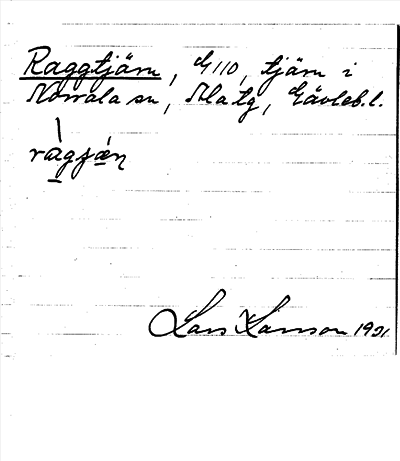 Raggtjärn, G110, tjärn i
Norrala sn, Ala tg, Gävleb.l.
ràgjän
Lars Larsson 1931